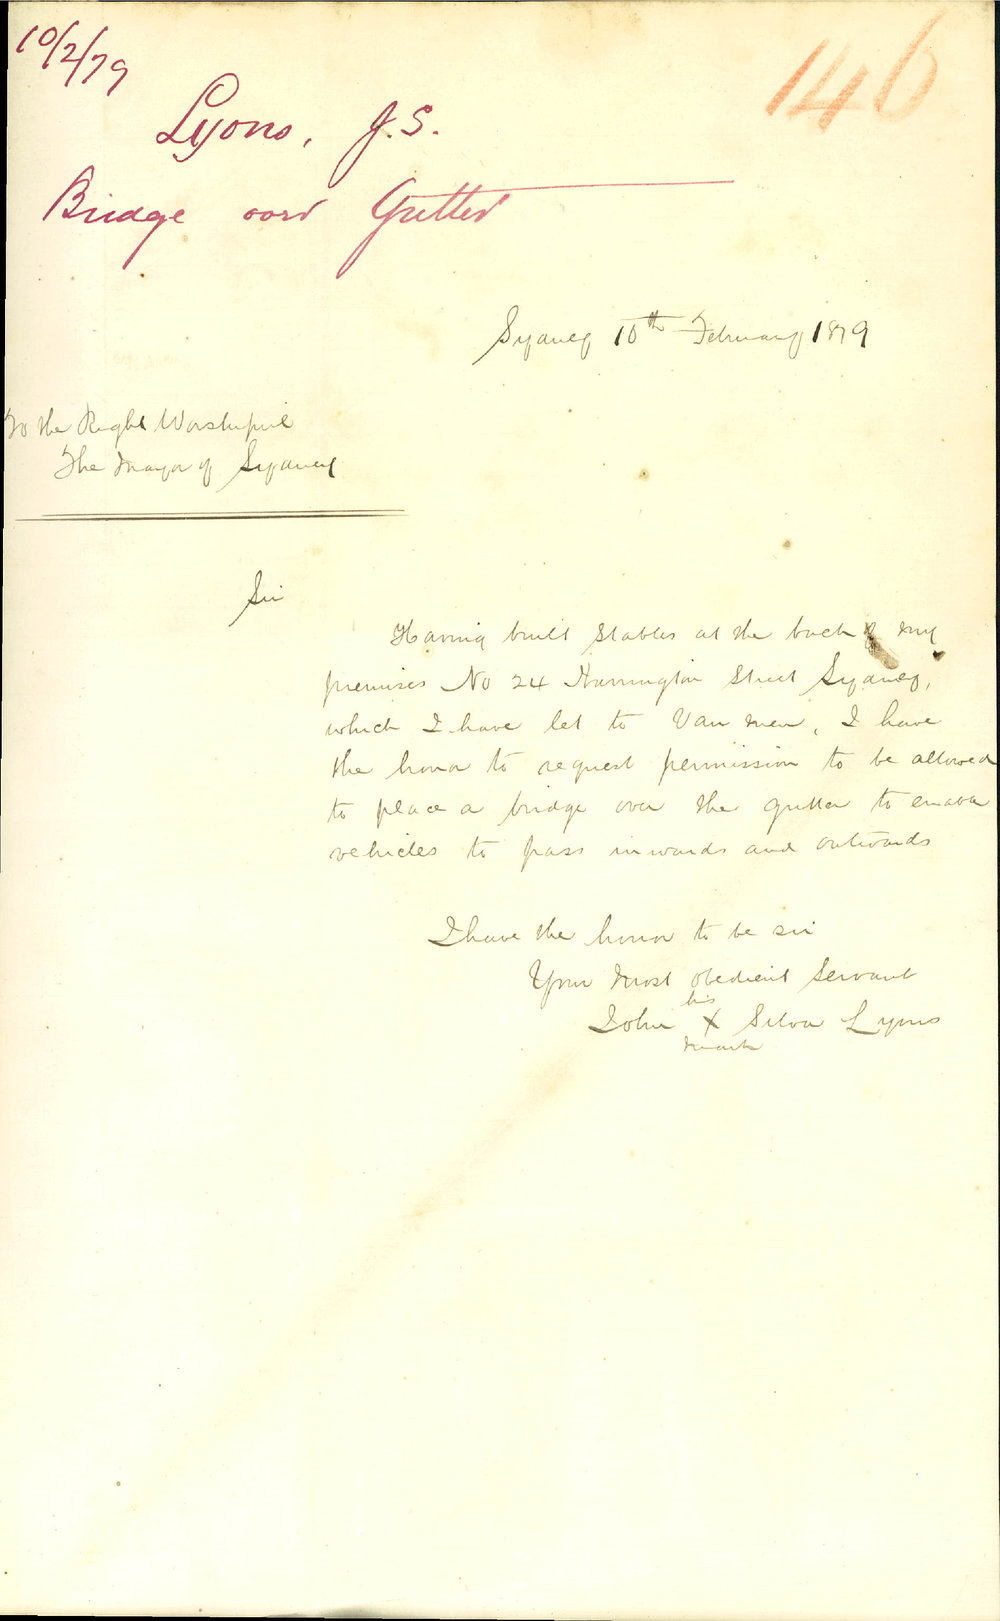 10/2/79
146
Lyons, J.S.
Bridge over Gutter
Sydney 10th February 1879
To the Right Worshipful
The Mayor of Sydney
Sir
Having built Stables at the back of my
premises No 24 Harrington Street Sydney,
which I have let to Van men, I have
the honor to request permission to be allowed
to place a bridge over the gutter to enable
vehicles to pass inwards and outwards
I have the honor to be sir
Your Most obedient Servant
his
John X Silva Lyons
Mark